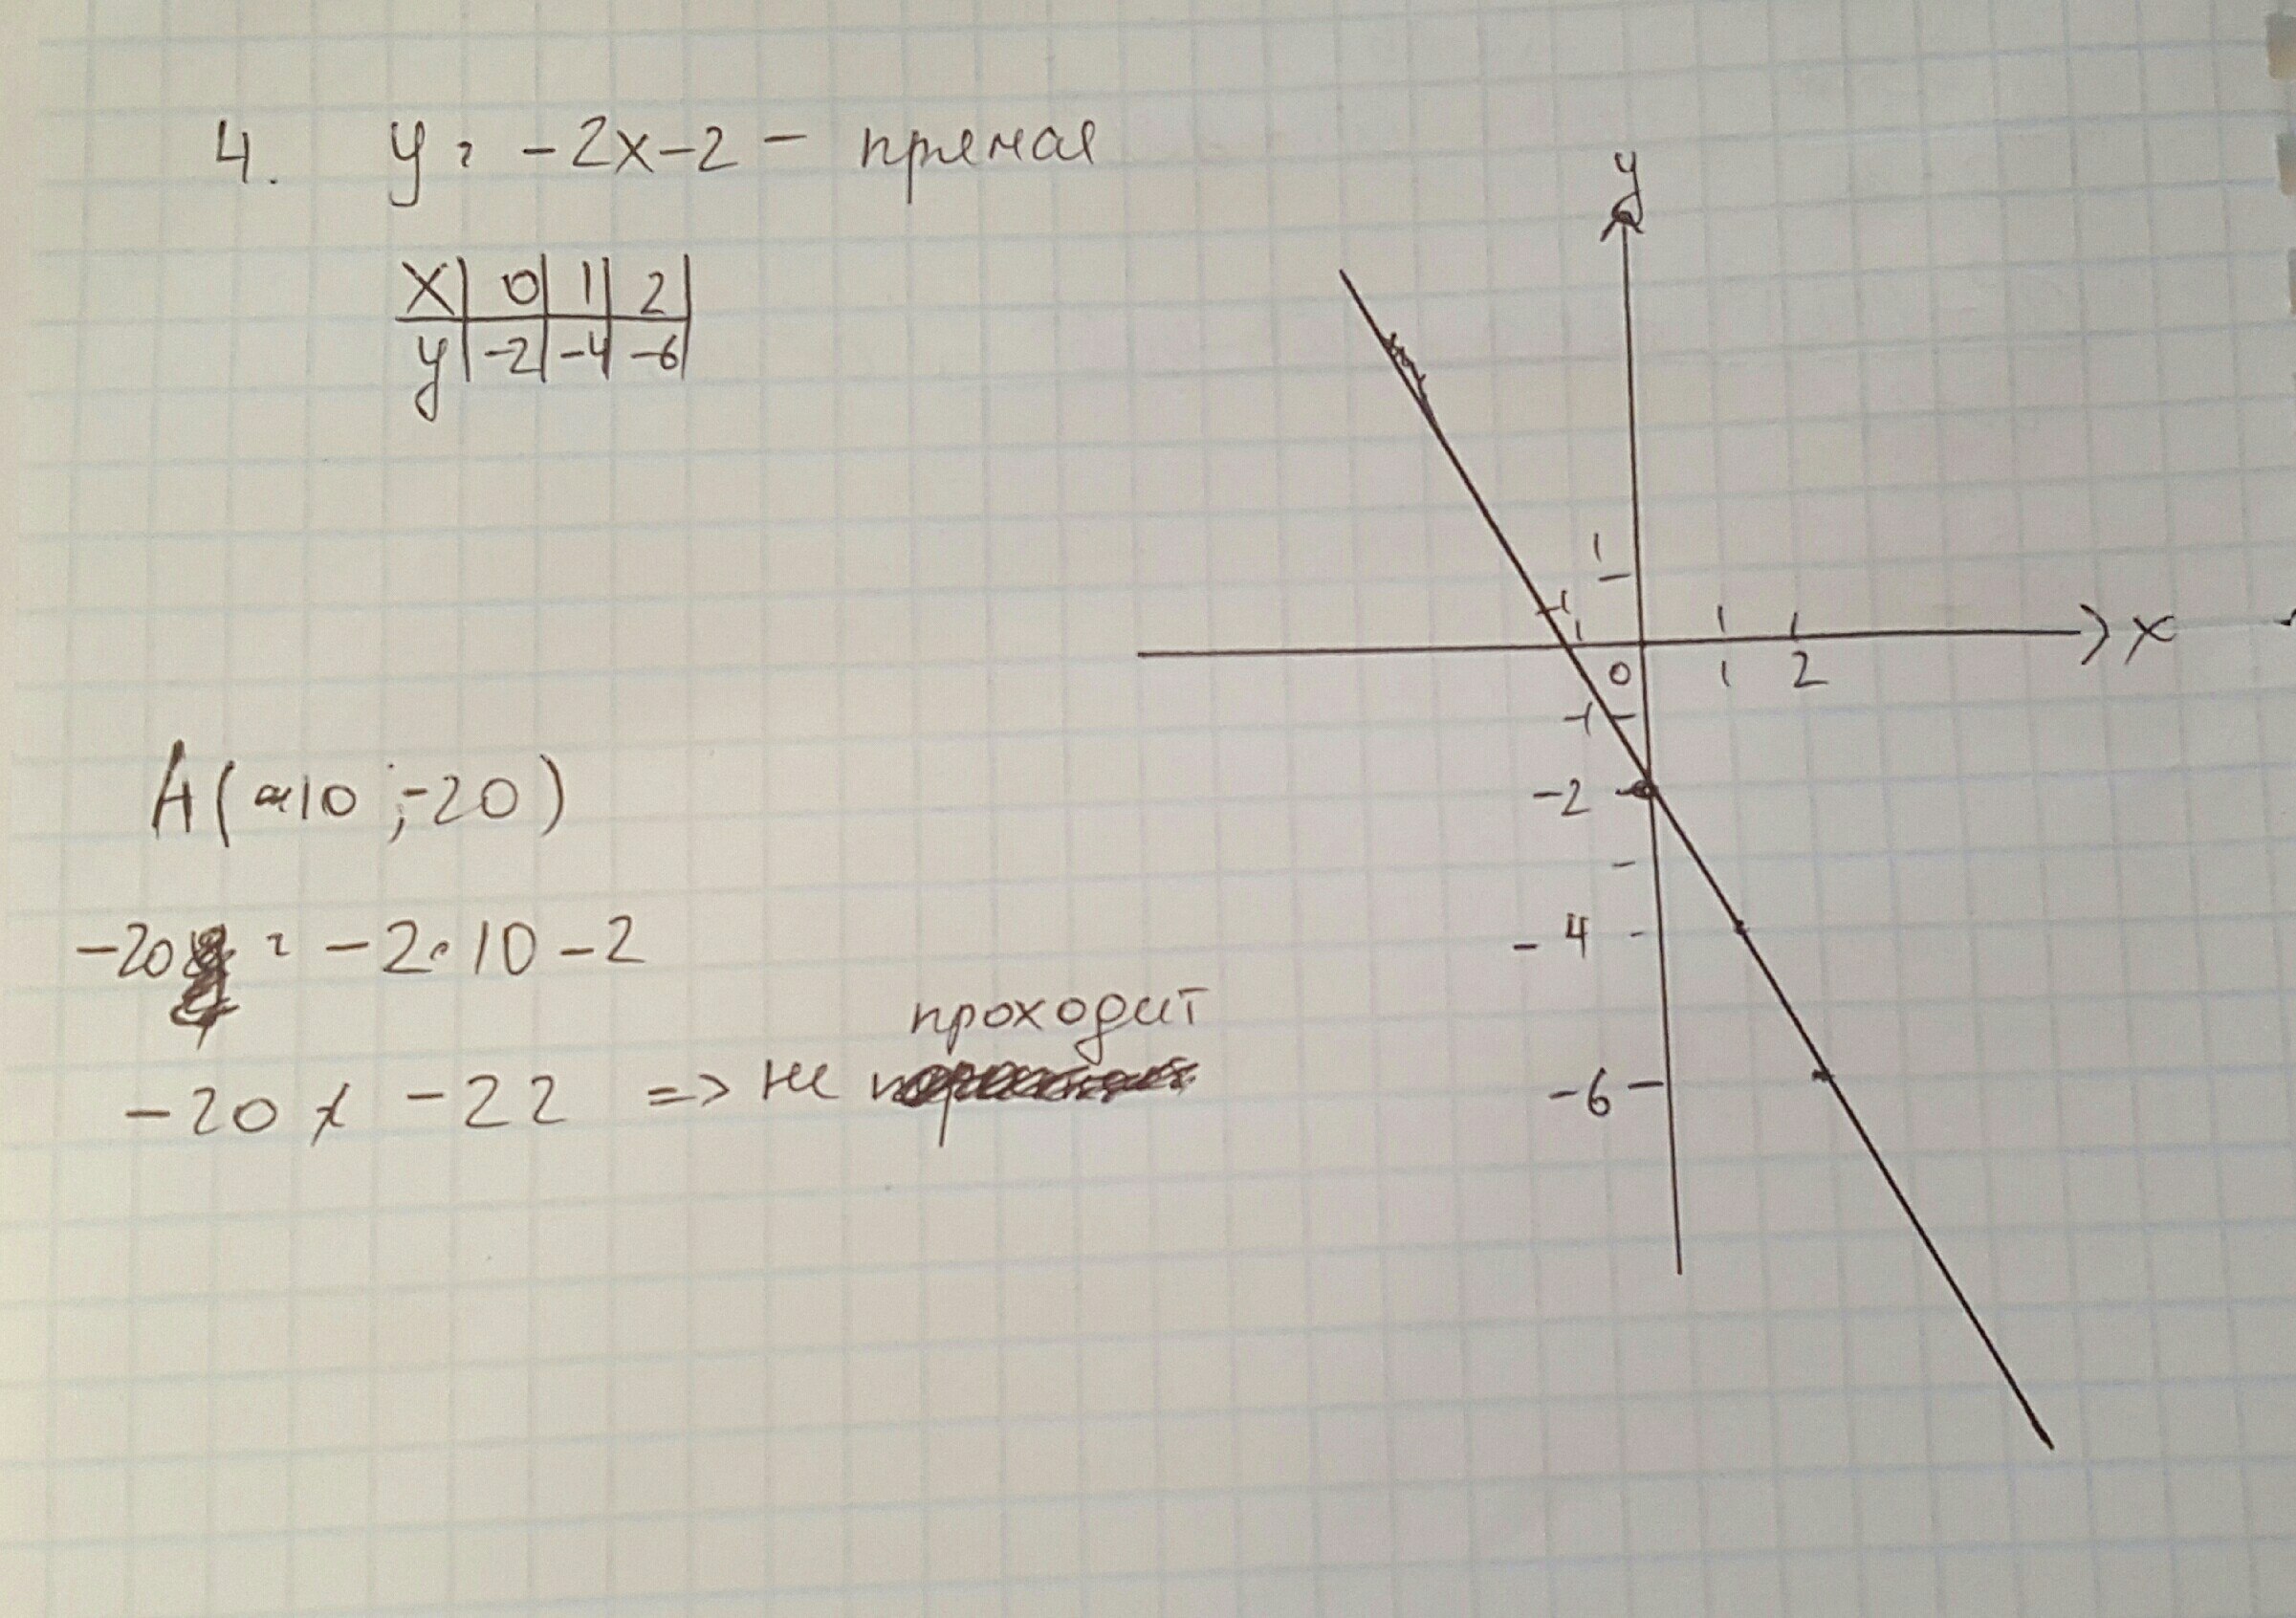 4. y = -2x-2 - прямая
x | 0 | 1 | 2
y | -2 | -4 | -6
A(-10 ; -20)
-20 = -2·10-2
-20 ≠ -22 => не проходит
y
1
-1
0 1 2 x
-1
-2
-4
-6